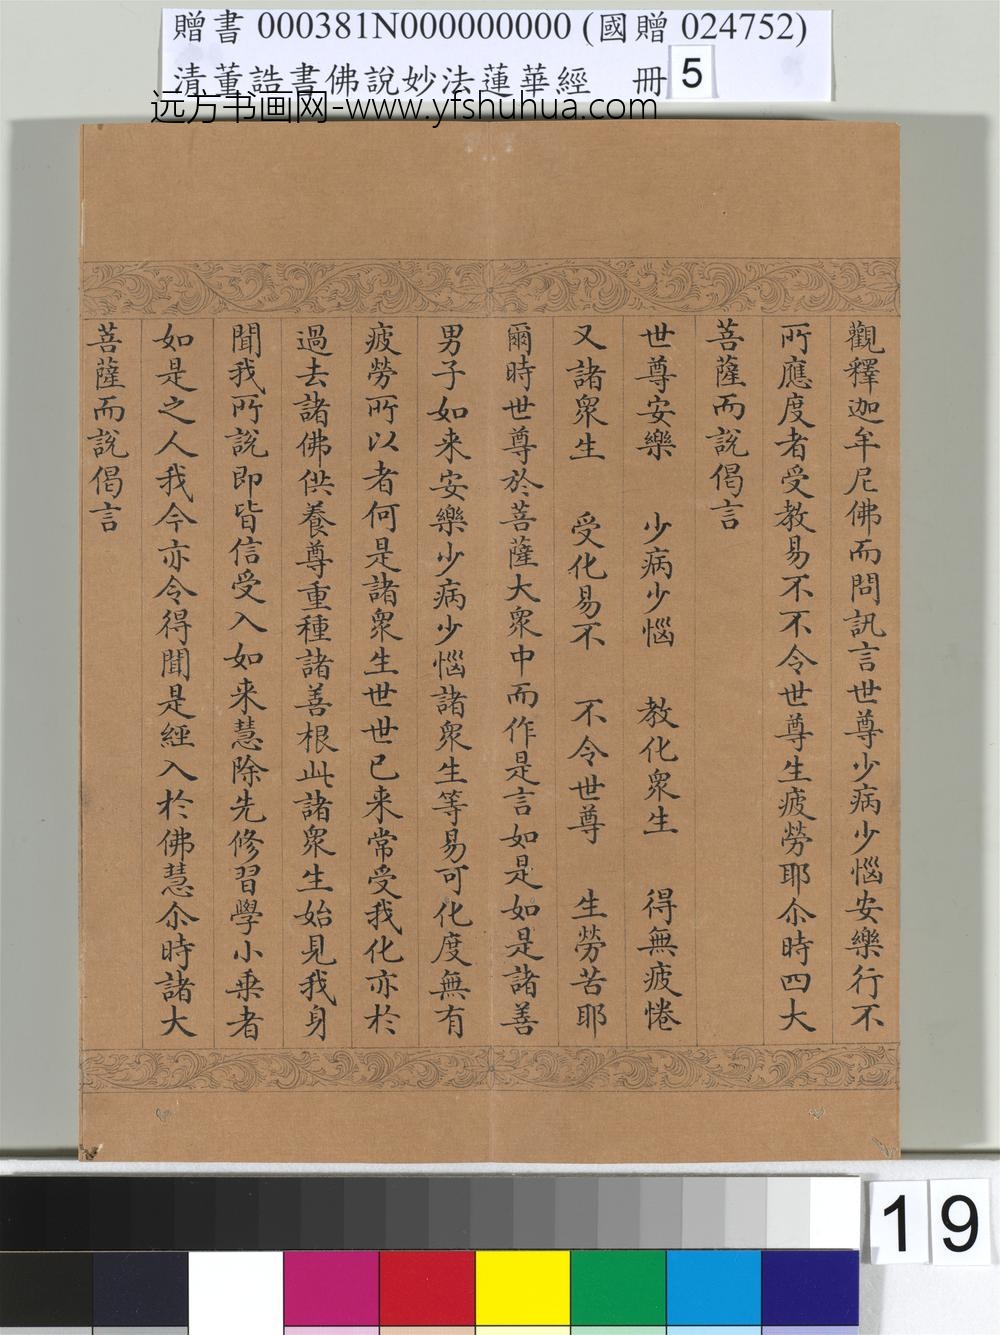 贈書 000381N000000000 (國贈 024752)
清董誥書佛說妙法蓮華經 冊 5
远方书画网-www.yfshuhua.com
觀釋迦牟尼佛而問訊言世尊少病少惱安樂行不
所應度者受教易不不令世尊生疲勞耶尒時四大
菩薩而說偈言
世尊安樂 少病少惱 教化衆生 得無疲惓
又諸衆生 受化易不 不令世尊 生勞苦耶
爾時世尊於菩薩大衆中而作是言如是如是諸善
男子如来安樂少病少惱諸衆生等易可化度無有
疲勞所以者何是諸衆生世世已来常受我化亦於
過去諸佛供養尊重種諸善根此諸衆生始見我身
聞我所說即皆信受入如来慧除先修習學小乗者
如是之人我今亦令得聞是經入於佛慧尒時諸大
菩薩而說偈言
19